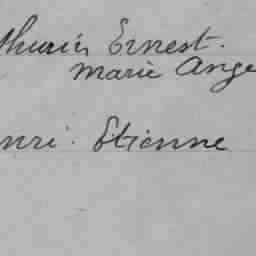 thurin Ernest.
Marie Ange
nri. Etienne